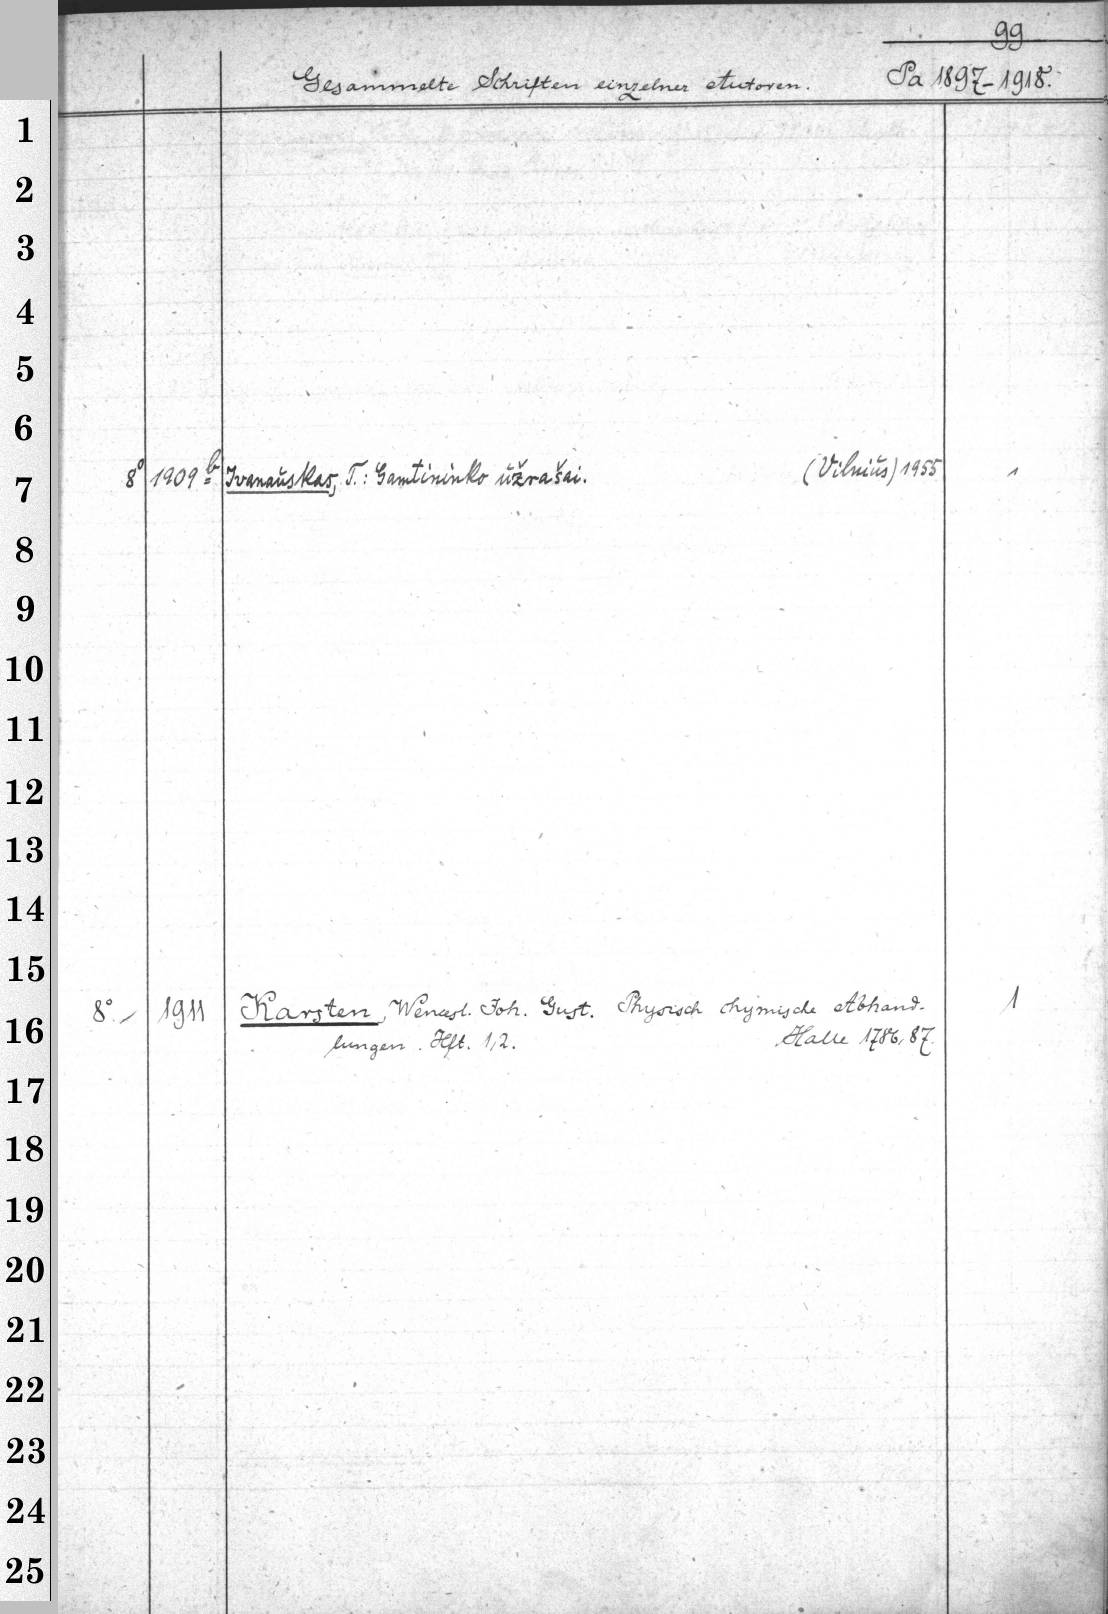 99
Gesammelte Schriften einzelner Autoren. Pa 1897-1918.
1
2
3
4
5
6
7 8° 1909 b Ivanauskas, T.: Gamtininko užrašai. (Vilnius) 1955 1
8
9
10
11
12
13
14
15
16 8°. 1911 Karsten, Wencesl. Joh. Gust. Physisch chymische Abhand- 1
lungen. Hft. 1,2. Halle 1786, 87.
17
18
19
20
21
22
23
24
25